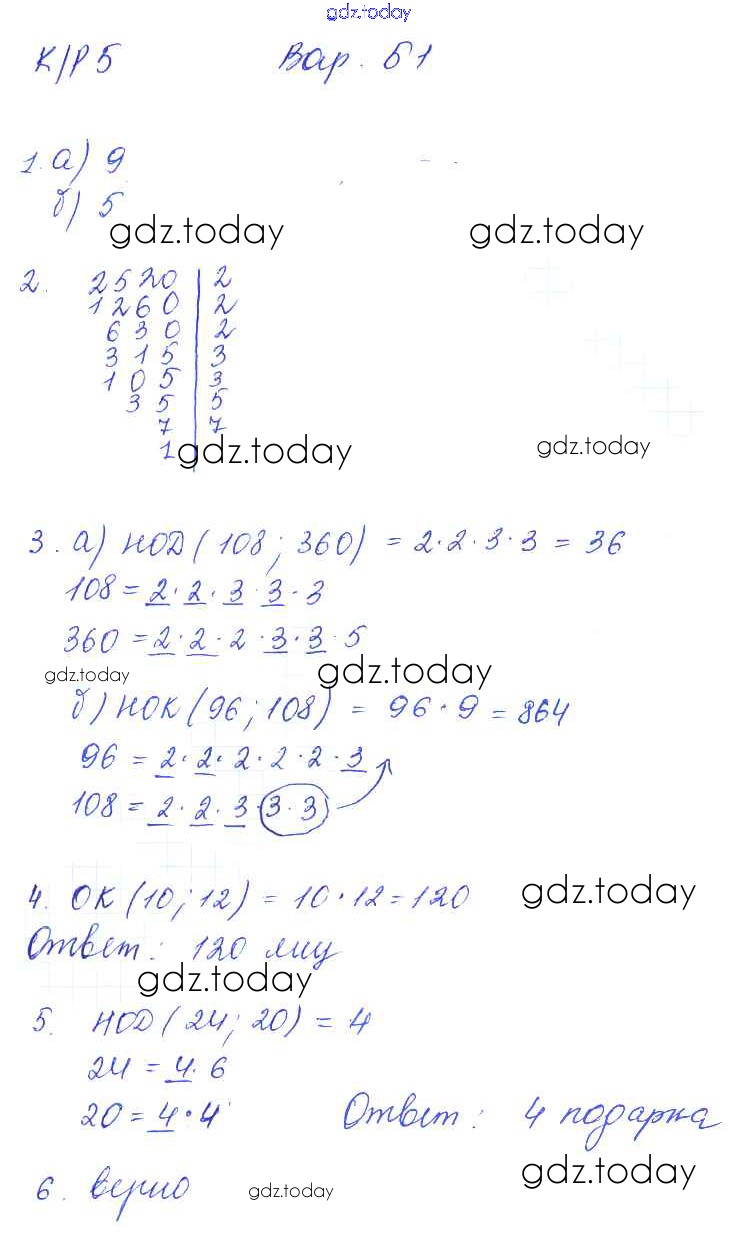 gdz.today
К/Р 5 Вар. Б1
1. а) 9
б) 5
gdz.today gdz.today
2. 2520 | 2
1260 | 2
630 | 2
315 | 3
105 | 3
35 | 5
7 | 7
1
gdz.today gdz.today
3. а) НОД (108; 360) = 2·2·3·3 = 36
108 = 2·2·3·3·3
360 = 2·2·2·3·3·5
gdz.today gdz.today
б) НОК (96; 108) = 96·9 = 864
96 = 2·2·2·2·2·3
108 = 2·2·3·3·3
4. ОК (10; 12) = 10·12 = 120
gdz.today
Ответ: 120 лиц
gdz.today
5. НОД (24; 20) = 4
24 = 4·6
20 = 4·4
Ответ: 4 подарка
gdz.today
6. верно
gdz.today